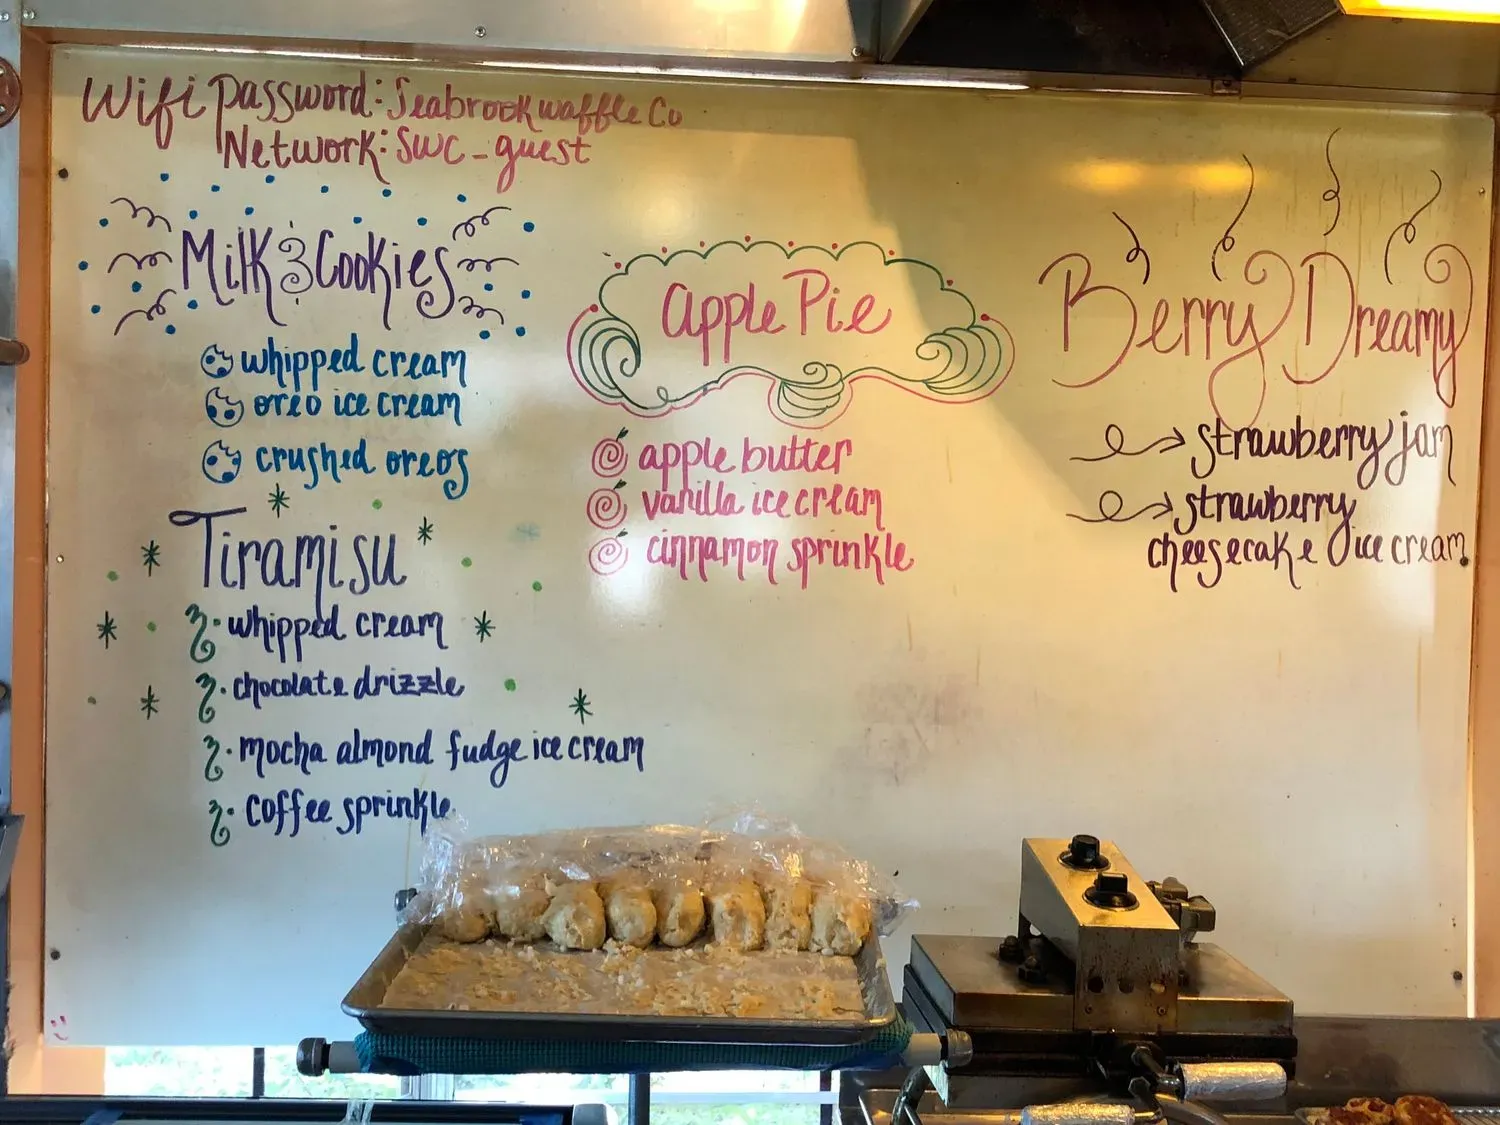 Wifi Password: Seabrook waffle Co
Network: SWC_guest
Milk & Cookies
whipped cream
oreo ice cream
crushed oreos
Tiramisu
whipped cream
chocolate drizzle
mocha almond fudge ice cream
coffee sprinkle
apple Pie
apple butter
vanilla ice cream
cinnamon sprinkle
Berry Dreamy
strawberry jam
strawberry
cheesecake ice cream